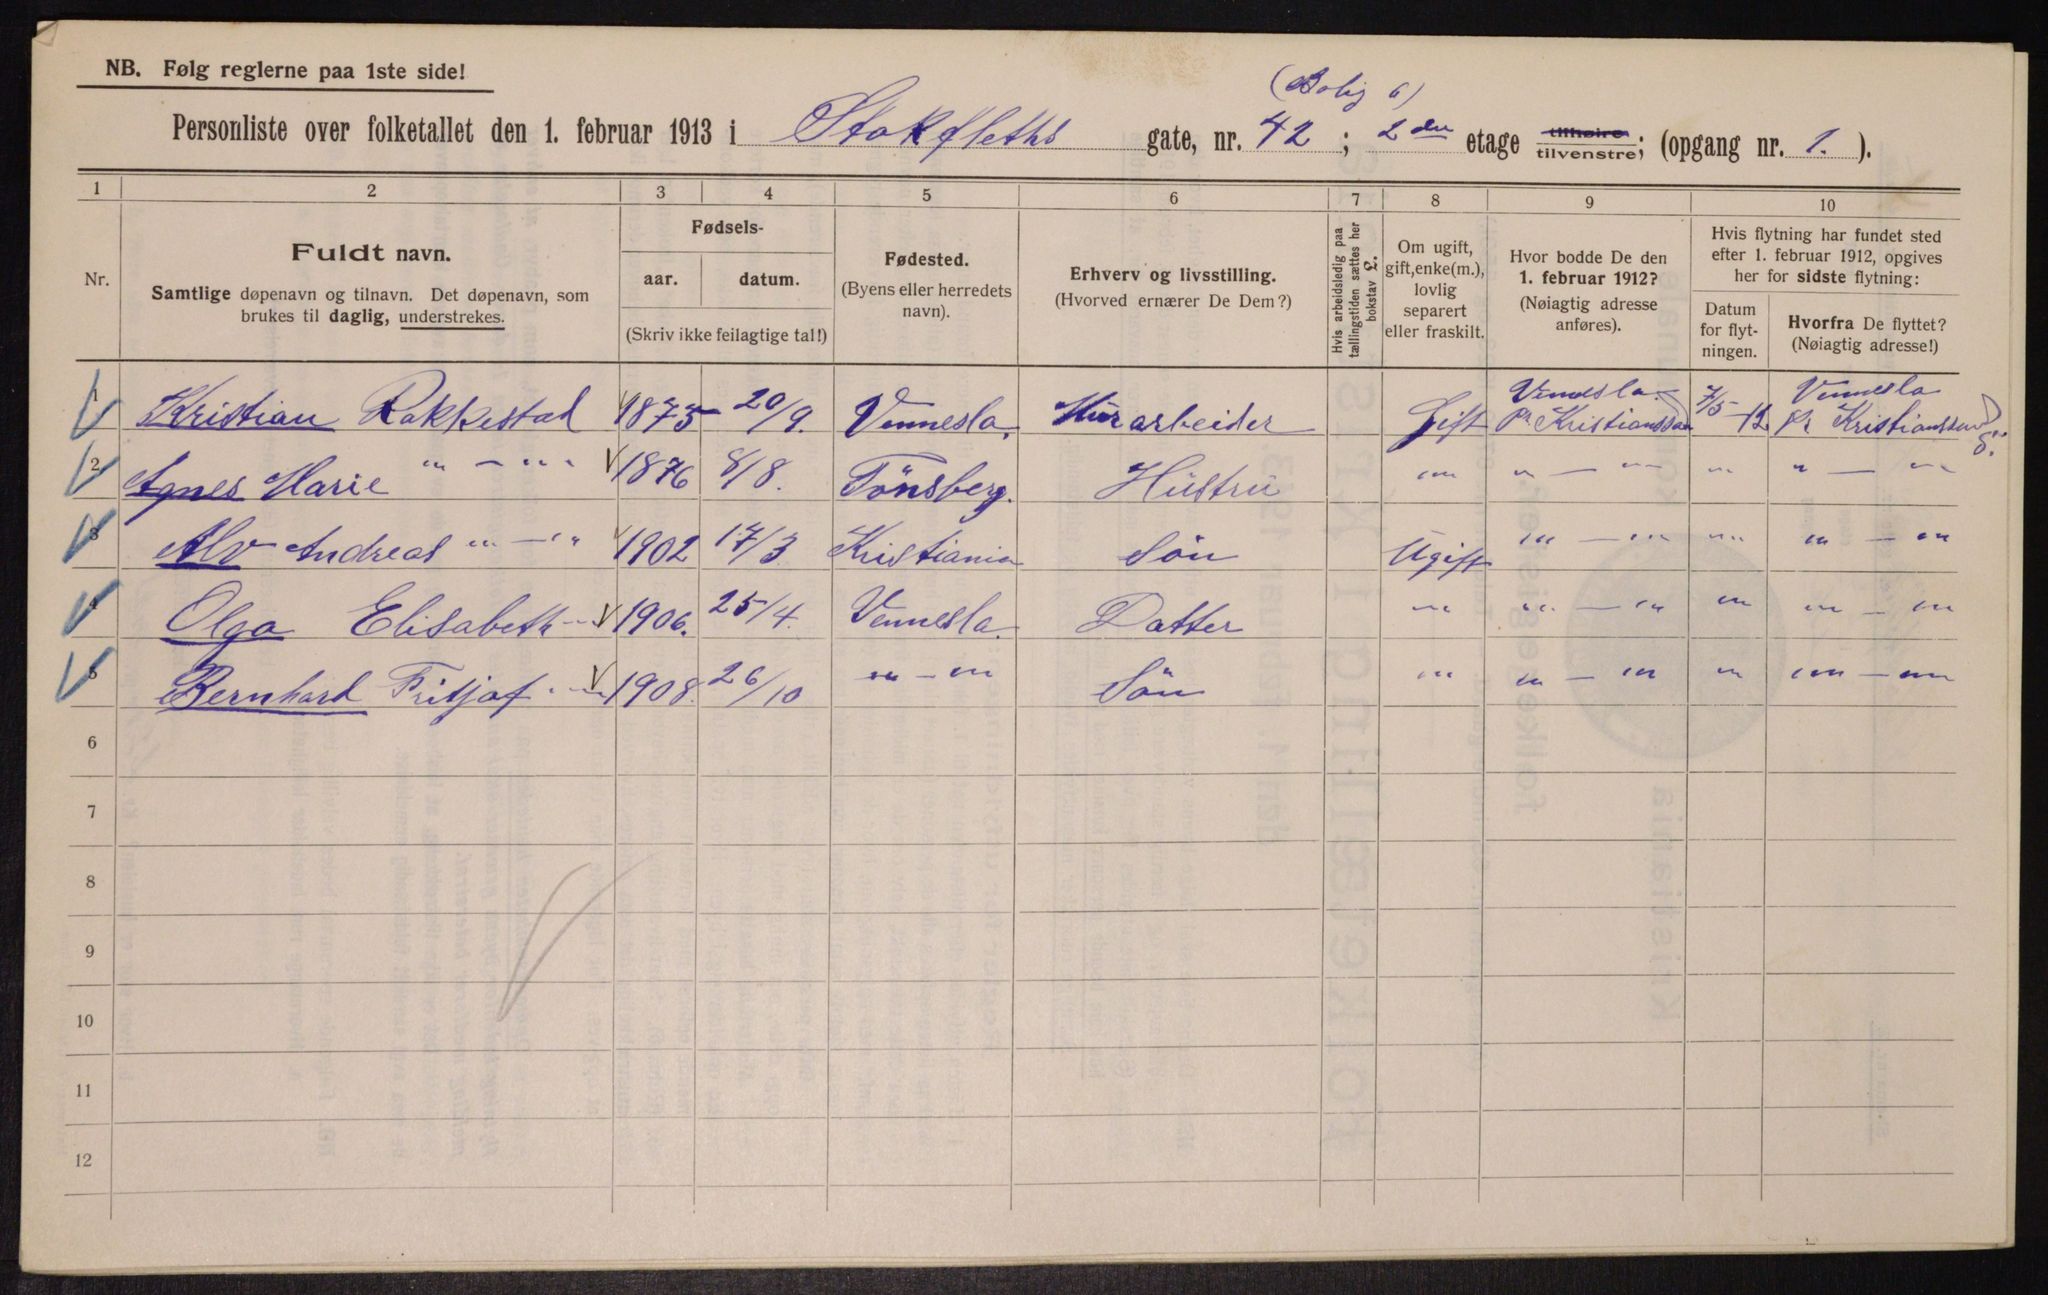 NB. Følg reglerne paa 1ste side!
(Bolig 6)
Personliste over folketallet den 1. februar 1913 i Stokfleths gate, nr. 42; 2den etage tilhøire tilvenstre; (opgang nr. 1.).
1 2 3 4 5 6 7 8 9 10
Nr.
Fuldt navn.
Samtlige døpenavn og tilnavn. Det døpenavn, som
brukes til daglig, understrekes.
Fødsels-
aar. datum.
(Skriv ikke feilagtige tal!)
Fødested.
(Byens eller herredets
navn).
Erhverv og livsstilling.
(Hvorved ernærer De Dem?)
Hvis arbeidsledig paa
tællingstiden sættes her
bokstav L.
Om ugift,
gift, enke(m.),
lovlig
separert
eller fraskilt.
Hvor bodde De den
1. februar 1912?
(Nøiagtig adresse
anføres).
Hvis flytning har fundet sted
efter 1. februar 1912, opgives
her for sidste flytning:
Datum
for flyt-
ningen.
Hvorfra De flyttet?
(Nøiagtig adresse!)
1 Kristian Rakkestad 1875 20/9. Vennesla. Murarbeider Gift Vennesla. Pr Kristianssand 7/5-12 Vennesla pr Kristianssand S.
2 Agnes Marie " - " 1876 8/8. Tönsberg. Hüstru " " - " " " - "
3 Alv Andreas " - " 1902 17/3 Kristiania Sön Ugift " - " " " - "
4 Olga Elisabeth - " 1906. 25/4. Vennesla. Datter " " - " " " - "
5 Bernhard Fritjof - " 1908. 26/10 " - " Sön " " - " " " - "
6
7
8
9
10
11
12